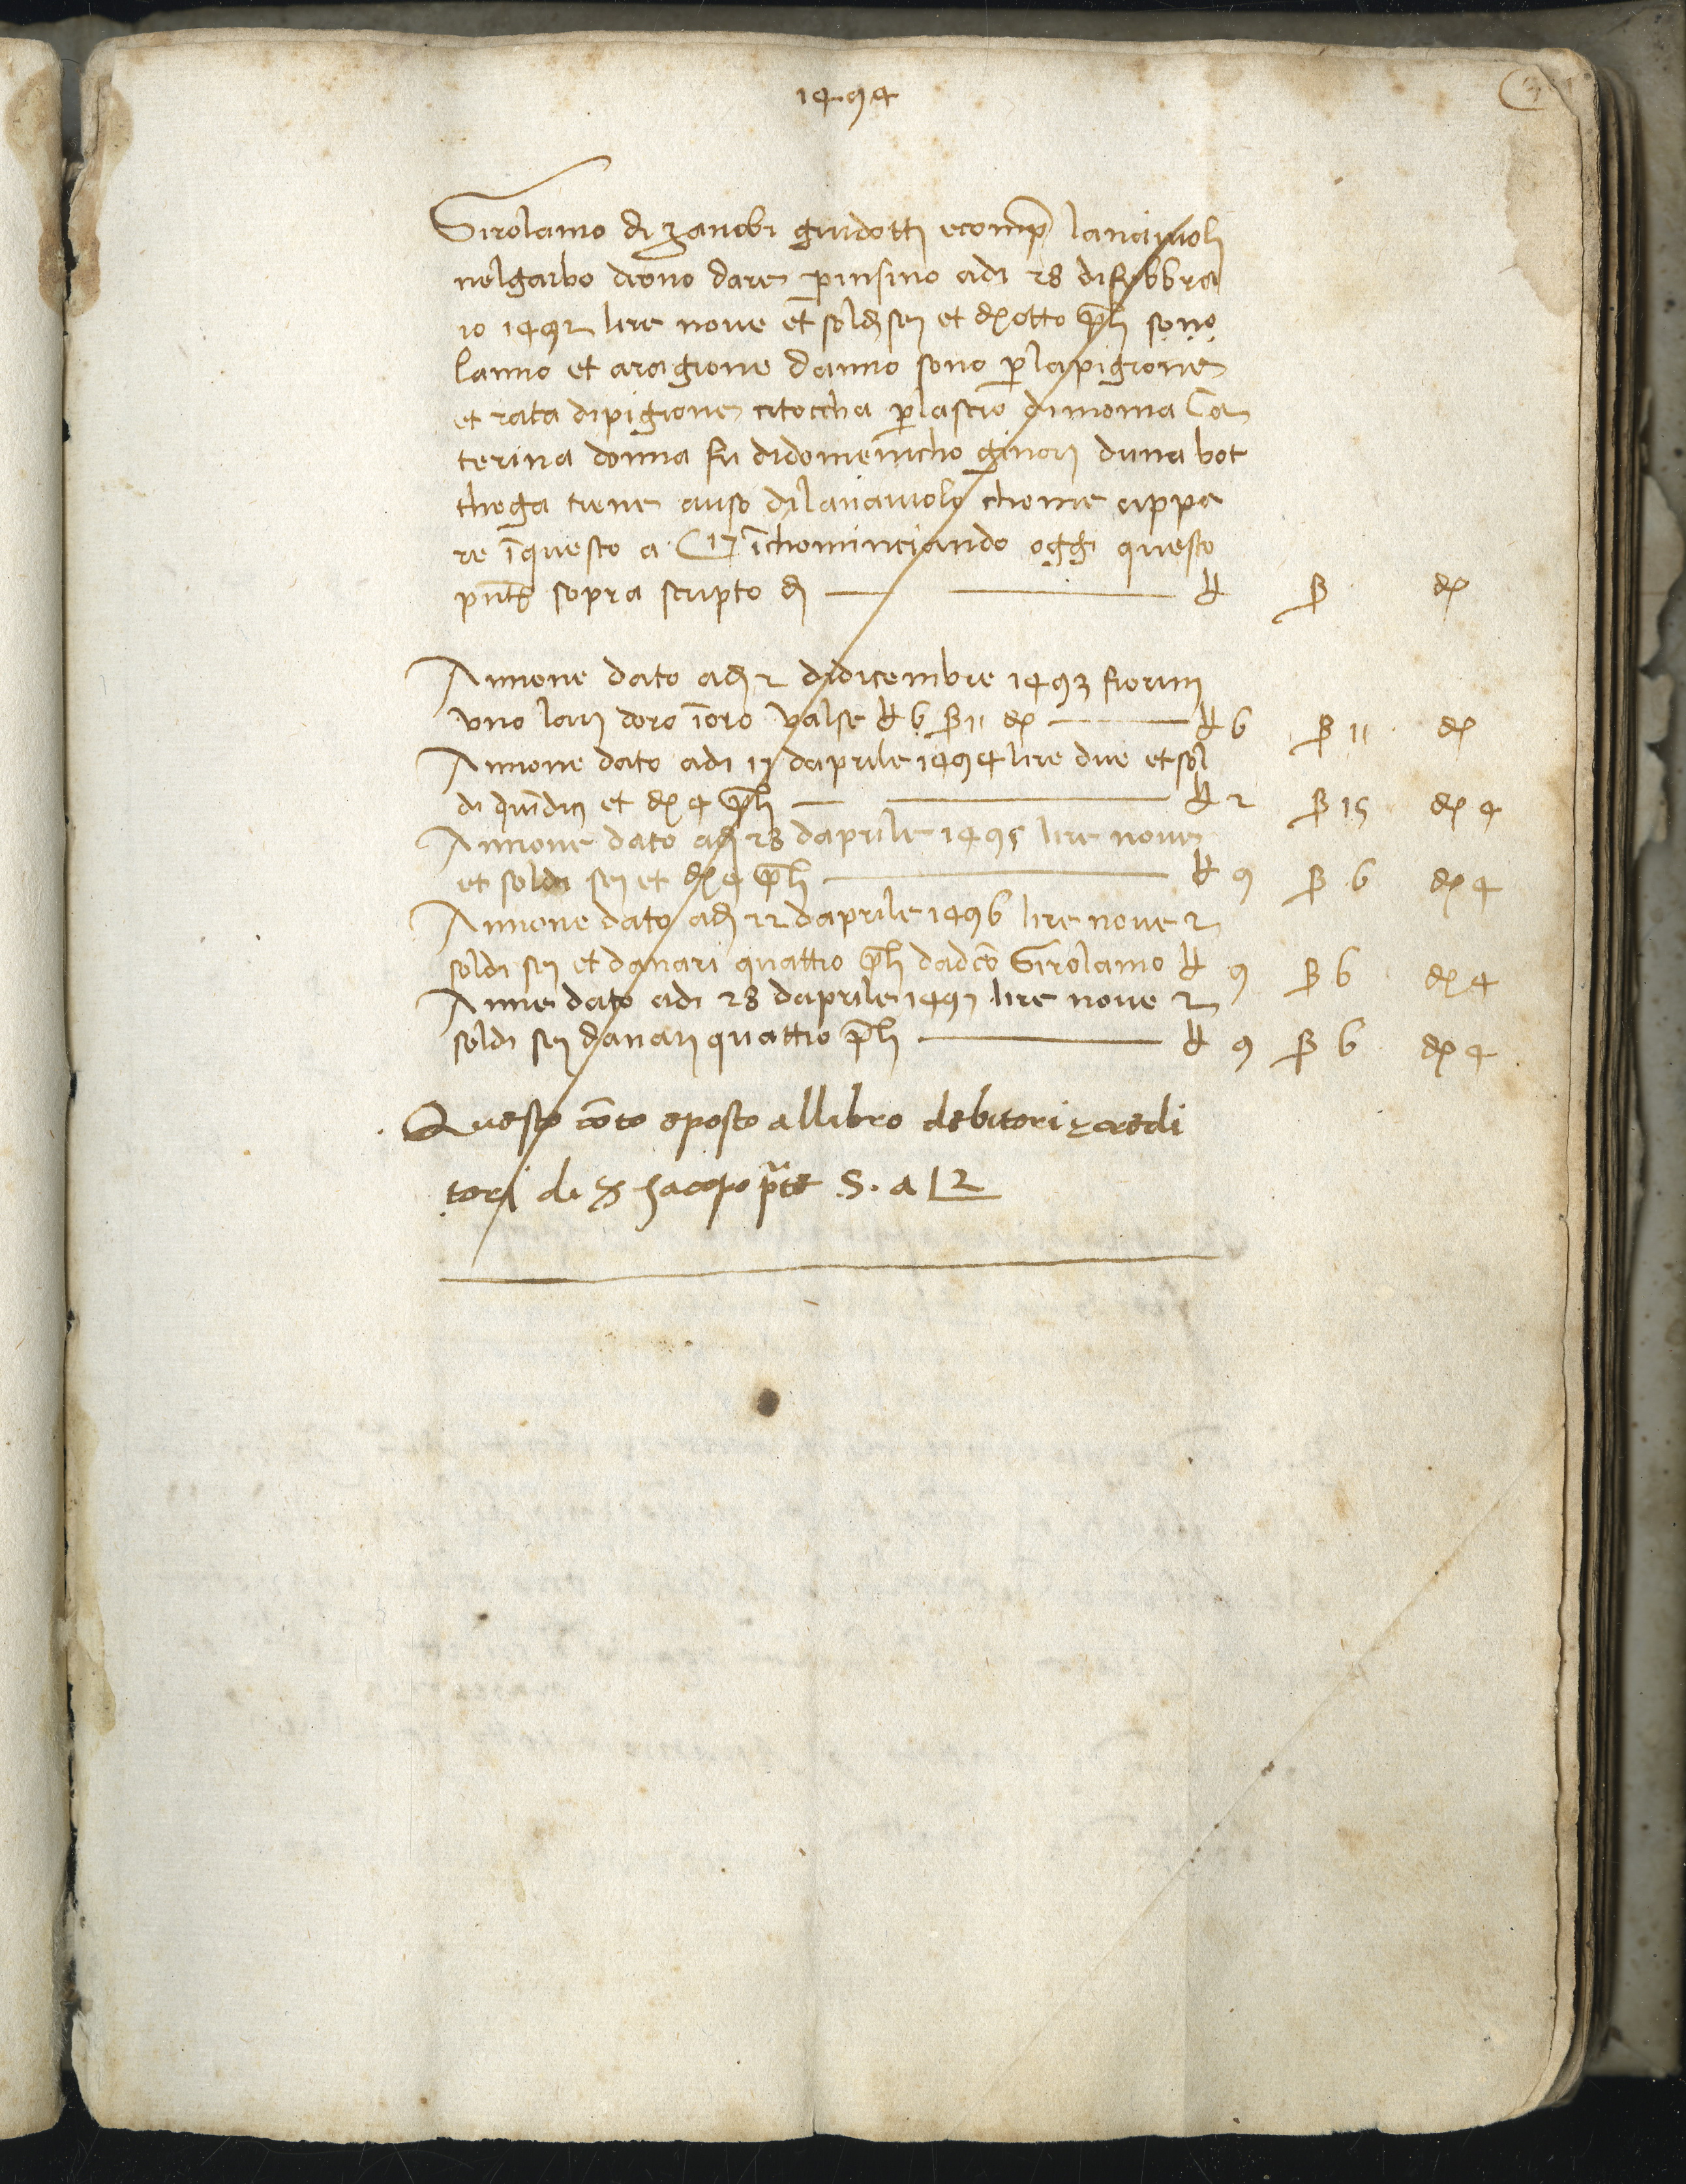 1494
Girolamo di zanobi guidotti ecomp lanaiuoli
nelgarbo deono dare pinsino adi 28 difebbra
io 1492 lire nove et soldi sei et d otto pli sono
lanno et aragione danno sono p lapigione
et rata dipigione citoccha p lascio dimona Ca
terina donna fu didomenicho ginori duna bot
thega tiene auso dilanaiuolo chome appa
re iquesto a C 17 ichominciando oggi questo
pnte sopra scripto di £ ß d
Annone dato adi 2 didicembre 1493 fiorini
uno lar doro ioro valse £ 6 ß 11 d £ 6 ß 11 d
Annone dato adi 17 daprile 1494 lire due et sol
di quidici et d 4 pli £ 2 ß 15 d 4
Annone dato adi 28 daprile 1495 lire nove
et soldi sei et d 4 pli £ 9 ß 6 d 4
Annone dato adi 22 daprile 1496 lire nove 2
soldi sei et danari quattro pli dadco Girolamo £ 9 ß 6 d 4
Anne dato adi 28 daprile 1497 lire nove 2
soldi sei danari quattro pli £ 9 ß 6 d 4
Questo coto eposto allibro debitori 2 credi
tori di Jacopo S. a 12